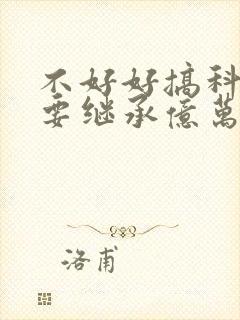 不好好搞科
要继承億萬
洛甫